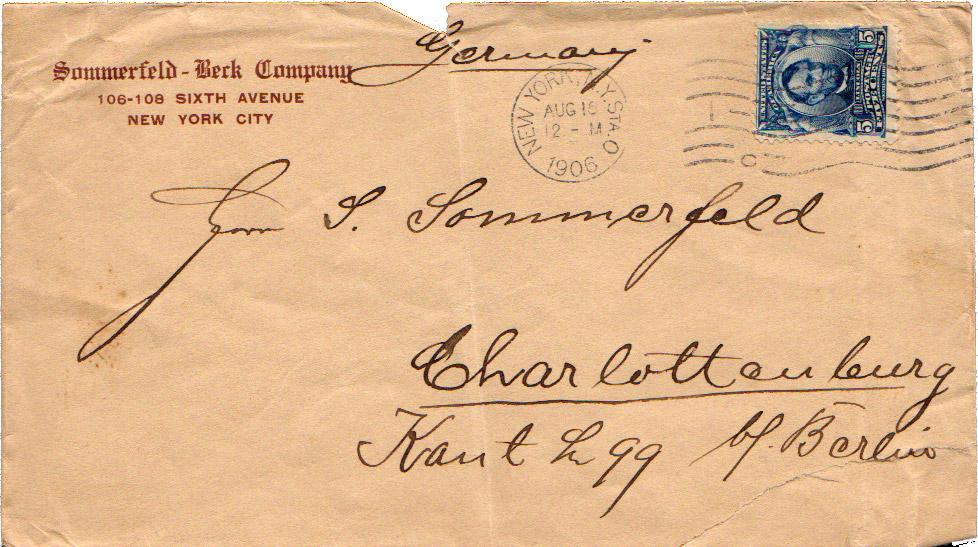 Germany
Sommerfeld - Beck Company
106-108 SIXTH AVENUE
NEW YORK CITY
NEW YORK, N.Y. STA. O
AUG 16
12 - M
1906
5 5
Herrn S. Sommerfeld
Charlottenburg
Kant 99 b/. Berlin